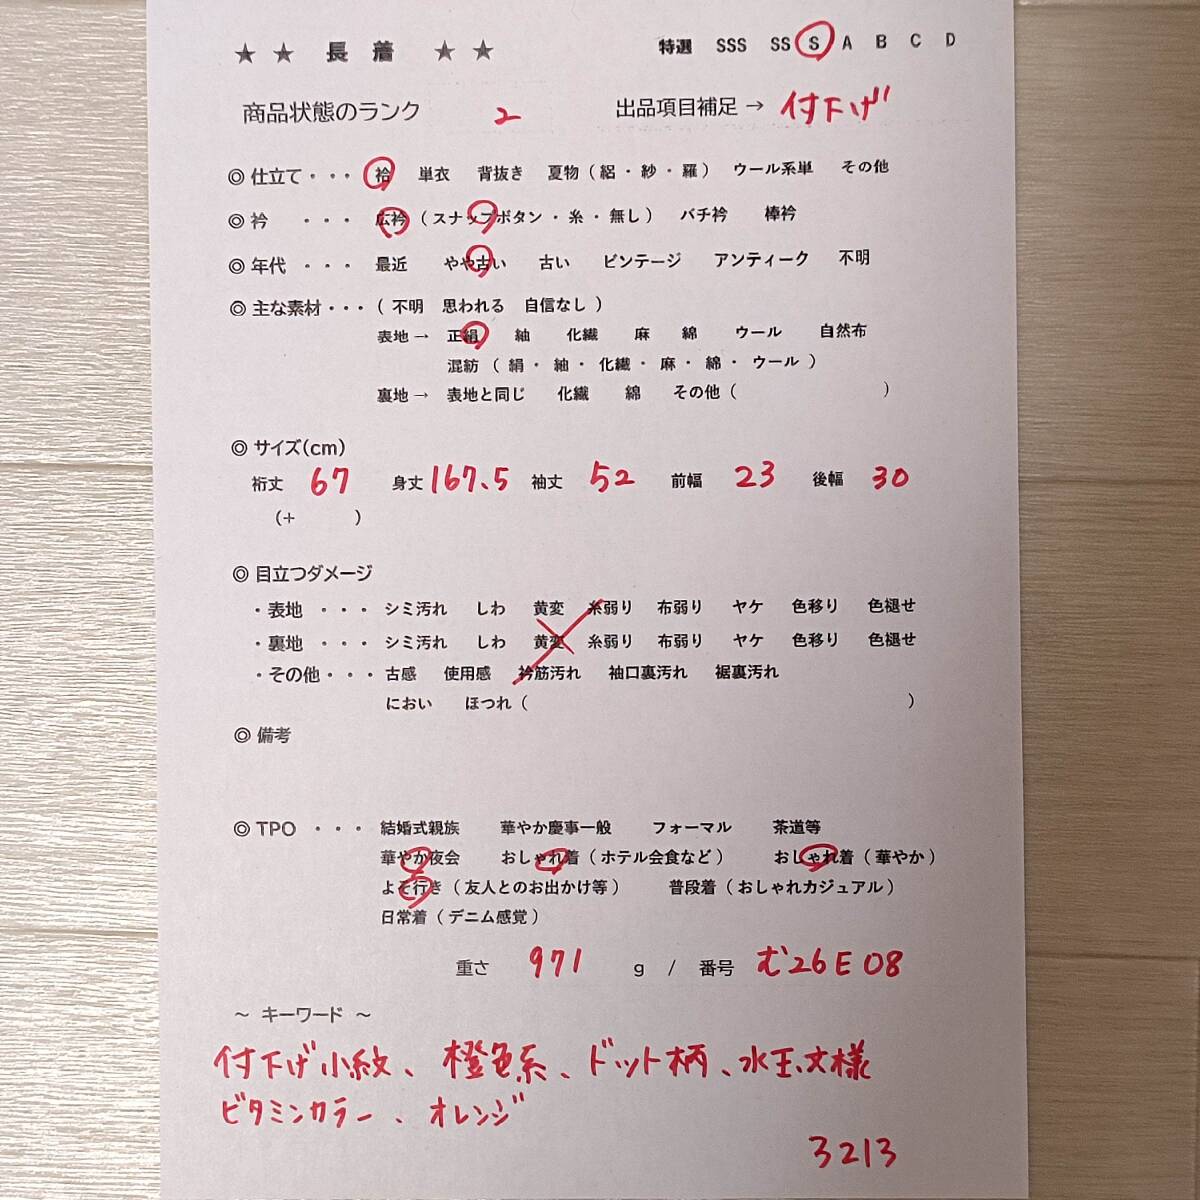 ★ ★ 長 着 ★ ★ 特選 SSS SS S A B C D
商品状態のランク 2 出品項目補足→ 付下げ
◎ 仕立て・・・ 袷 単衣 背抜き 夏物（絽・紗・羅） ウール系単 その他
◎ 衿 ・・・ 広衿（スナップボタン・糸・無し） バチ衿 棒衿
◎ 年代 ・・・ 最近 やや古い 古い ビンテージ アンティーク 不明
◎ 主な素材・・・（ 不明 思われる 自信なし ）
表地→ 正絹 紬 化繊 麻 綿 ウール 自然布
混紡（ 絹・紬・化繊・麻・綿・ウール ）
裏地→ 表地と同じ 化繊 綿 その他（ ）
◎ サイズ(cm)
裄丈 67 身丈 167.5 袖丈 52 前幅 23 後幅 30
（+ ）
◎ 目立つダメージ
・表地 ・・・ シミ汚れ しわ 黄変 糸弱り 布弱り ヤケ 色移り 色褪せ
・裏地 ・・・ シミ汚れ しわ 黄変 糸弱り 布弱り ヤケ 色移り 色褪せ
・その他・・・ 古感 使用感 衿筋汚れ 袖口裏汚れ 裾裏汚れ
におい ほつれ（ ）
◎ 備考
◎ TPO ・・・ 結婚式親族 華やか慶事一般 フォーマル 茶道等
華やか夜会 おしゃれ着（ホテル会食など） おしゃれ着（華やか）
よそ行き（友人とのお出かけ等） 普段着（おしゃれカジュアル）
日常着（デニム感覚）
重さ 971 g / 番号 む26E08
～ キーワード ～
付下げ小紋、橙色系、ドット柄、水玉文様
ビタミンカラー、オレンジ
3213